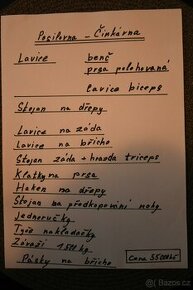 Posilovna - Činkárna
Lavice benč
prsa polohovaná
lavice biceps
Stojan na dřepy
Lavice na záda
Lavice na břicho
Stojan záda + hrazda triceps
Kladky na prsa
Haken na dřepy
Stojan na předkopávání nohy
Jednoručky
Tyče nakladačky
Závaží 1500 kg
Pásky na břicho
Cena 55000 Kč